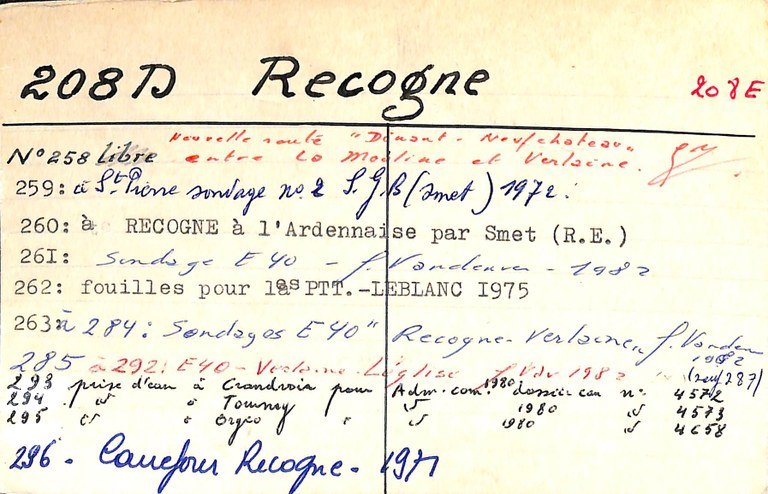 208D Recogne 208E
Nouvelle route "Dinant - Neufchateau"
N° 258 libre entre La Mouline et Verlaine.
259: à St Pierre sondage no 2 S.G.B (Smet) 1972.
260: à RECOGNE à l'Ardennaise par Smet (R.E.)
261: Sondage E 40 - f. Vandenven - 1982
262: fouilles pour les PTT.-LEBLANC 1975
263 à 284: Sondages E40 "Recogne-Verlaine" f. Vanden
1982
285 à 292: E40 - Verlaine-Léglise f. Vdv 1982 (sauf 287)
293 prise d'eau à Grandvoir pour Adm. com. 1980 dossier eau n° 4572
294 " " Tournay " " 1980 " 4573
295 " " Orgeo " " 1980 " 4658
296 - Carrefour Recogne - 1971